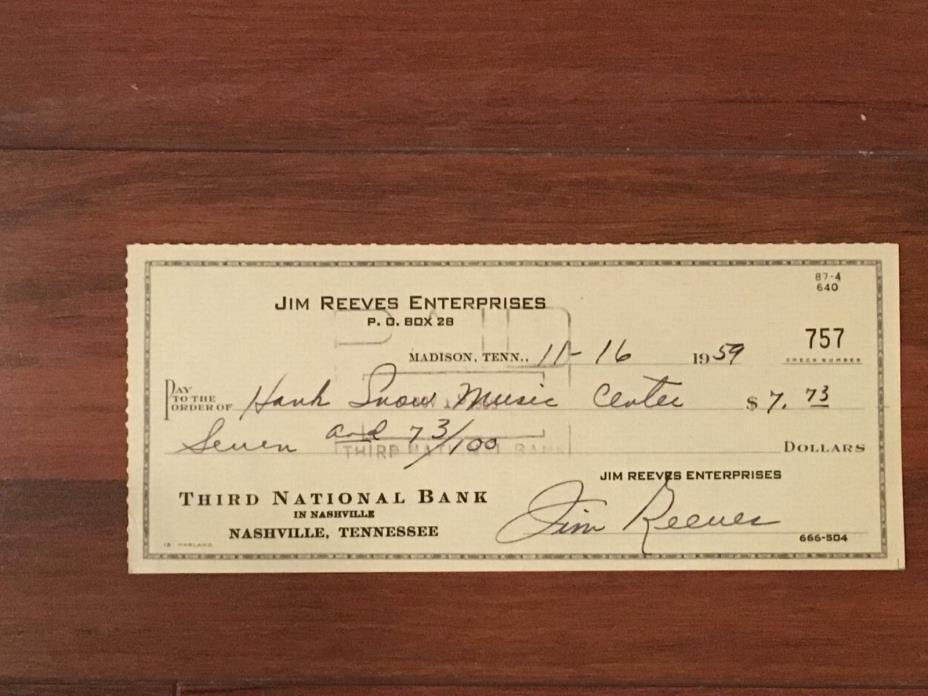 87-4
640
JIM REEVES ENTERPRISES
P. O. BOX 28
757
CHECK NUMBER
MADISON, TENN., 11-16 1959
PAY TO THE ORDER OF Hank Snow Music Center $ 7. 73
Seven and 73/100 DOLLARS
PAID
THIRD NATIONAL BANK
JIM REEVES ENTERPRISES
THIRD NATIONAL BANK
IN NASHVILLE
NASHVILLE, TENNESSEE
Jim Reeves
666-504
HARLAND